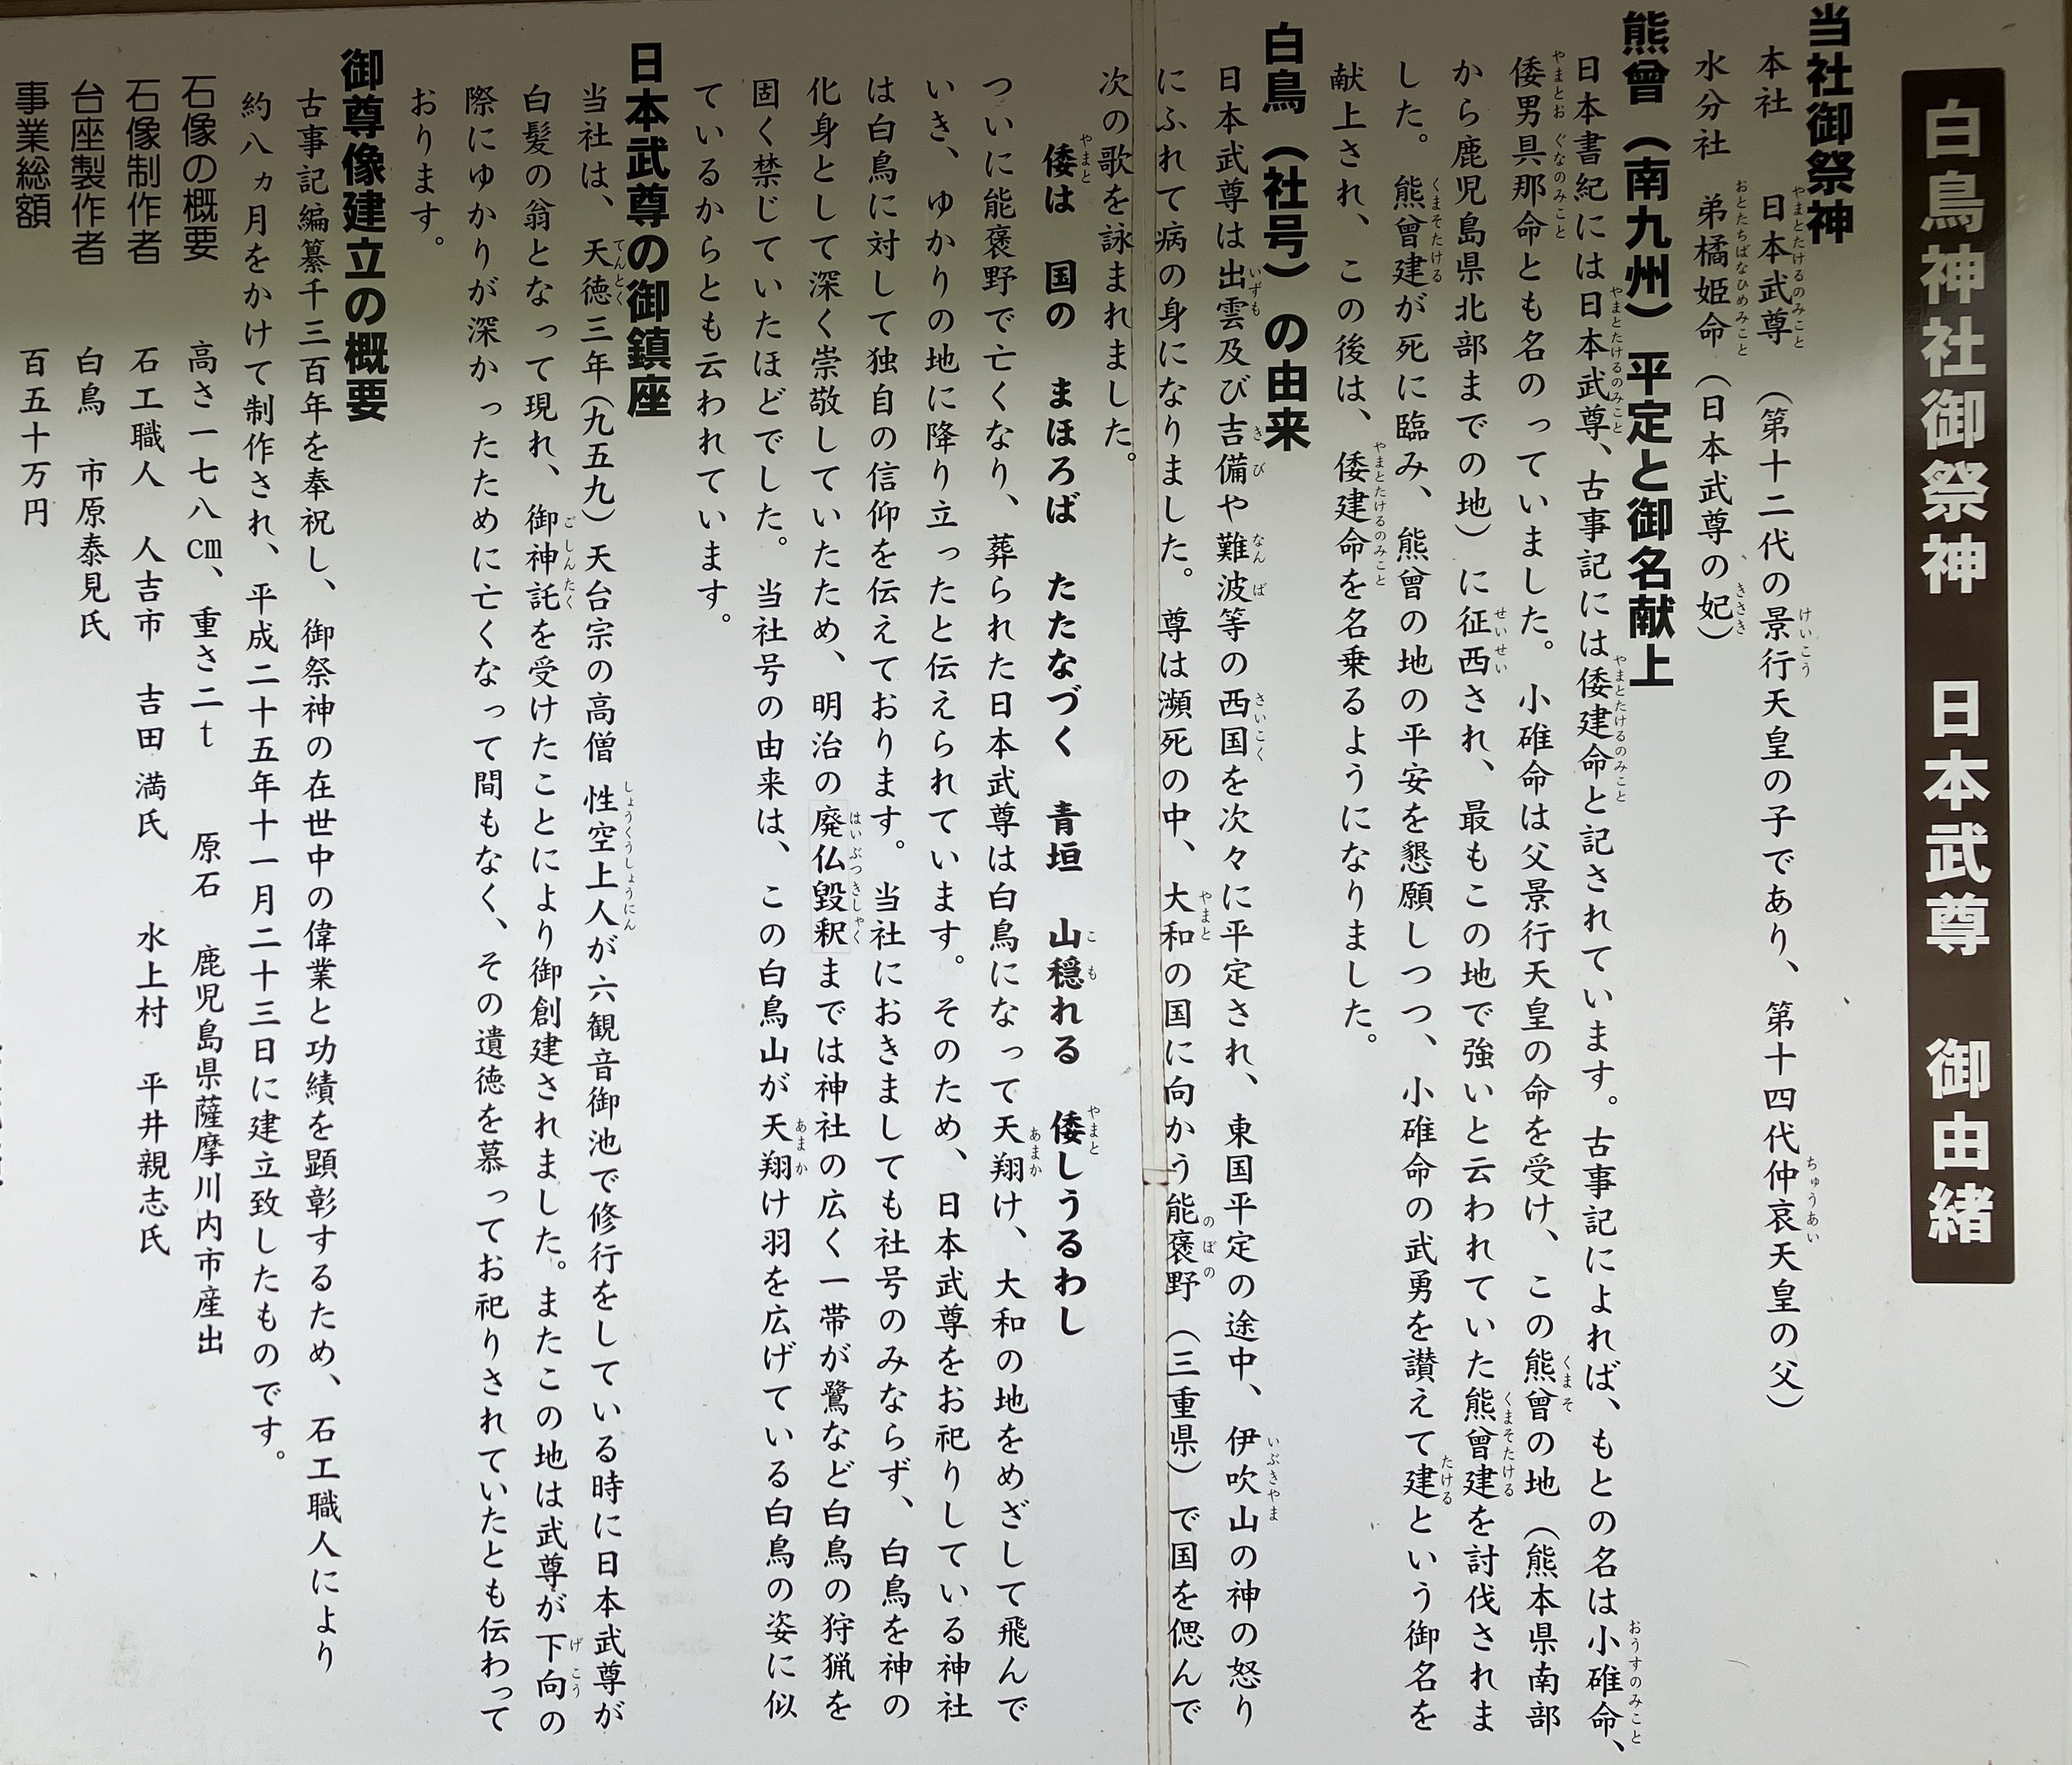 白鳥神社御祭神　日本武尊　御由緒
当社御祭神
本社　日本武尊（第十二代の景行天皇の子であり、第十四代仲哀天皇の父）
水分社　弟橘姫命（日本武尊の妃）
熊曾（南九州）平定と御名献上
日本書紀には日本武尊、古事記には倭建命と記されています。古事記によれば、もとの名は小碓命、
倭男具那命とも名のっていました。小碓命は父景行天皇の命を受け、この熊曾の地（熊本県南部
から鹿児島県北部までの地）に征西され、最もこの地で強いと云われていた熊曾建を討伐されま
した。熊曾建が死に臨み、熊曾の地の平安を懇願しつつ、小碓命の武勇を讃えて建という御名を
献上され、この後は、倭建命を名乗るようになりました。
白鳥（社号）の由来
日本武尊は出雲及び吉備や難波等の西国を次々に平定され、東国平定の途中、伊吹山の神の怒り
にふれて病の身になりました。尊は瀕死の中、大和の国に向かう能褒野（三重県）で国を偲んで
次の歌を詠まれました。
倭は　国の　まほろば　たたなづく　青垣　山穏れる　倭しうるわし
ついに能褒野で亡くなり、葬られた日本武尊は白鳥になって天翔け、大和の地をめざして飛んで
いき、ゆかりの地に降り立ったと伝えられています。そのため、日本武尊をお祀りしている神社
は白鳥に対して独自の信仰を伝えております。当社におきましても社号のみならず、白鳥を神の
化身として深く崇敬していたため、明治の廃仏毀釈までは神社の広く一帯が鷺など白鳥の狩猟を
固く禁じていたほどでした。当社号の由来は、この白鳥山が天翔け羽を広げている白鳥の姿に似
ているからとも云われています。
日本武尊の御鎮座
当社は、天徳三年（九五九）天台宗の高僧　性空上人が六観音御池で修行をしている時に日本武尊が
白髪の翁となって現れ、御神託を受けたことにより御創建されました。またこの地は武尊が下向の
際にゆかりが深かったために亡くなって間もなく、その遺徳を慕ってお祀りされていたとも伝わって
おります。
御尊像建立の概要
古事記編纂千三百年を奉祝し、御祭神の在世中の偉業と功績を顕彰するため、石工職人により
約八ヵ月をかけて制作され、平成二十五年十一月二十三日に建立致したものです。
石像の概要　高さ一七八㎝、重さ二ｔ　原石　鹿児島県薩摩川内市産出
石像制作者　石工職人　人吉市　吉田　満氏　水上村　平井親志氏
台座製作者　白鳥　市原泰見氏
事業総額　百五十万円